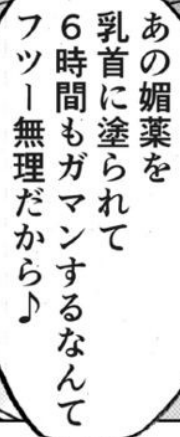 あの媚薬を
乳首に塗られて
６時間もガマンするなんて
フツー無理だから♪